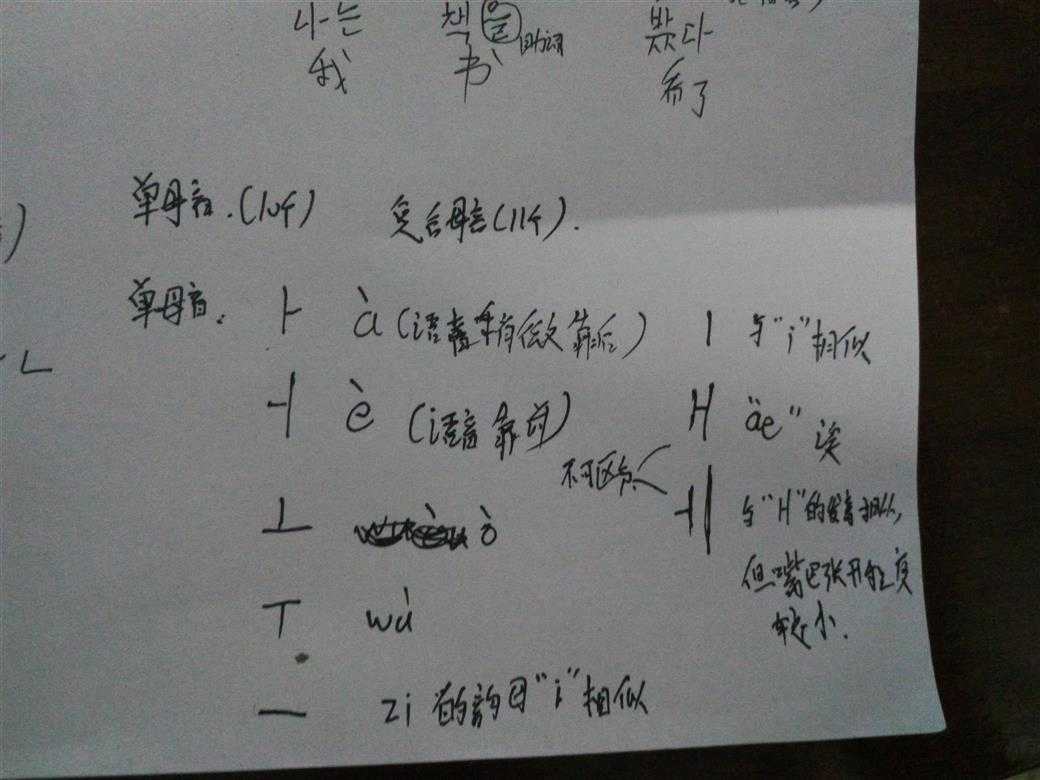 나는 책을 助词 봤다
我 书 看了
单母音.(10个) 复合母音(11个).
单母音. ㅏ à (语音稍微靠后) ㅣ 与"i"相似
ㅓ è (语音靠前) ㅐ "ae" 埃
不可区分
ㅗ ò ㅔ 与"ㅐ"的发音相似,
但嘴巴张开程度
较小.
ㅜ wù
ㅡ zi 的韵母"i"相似